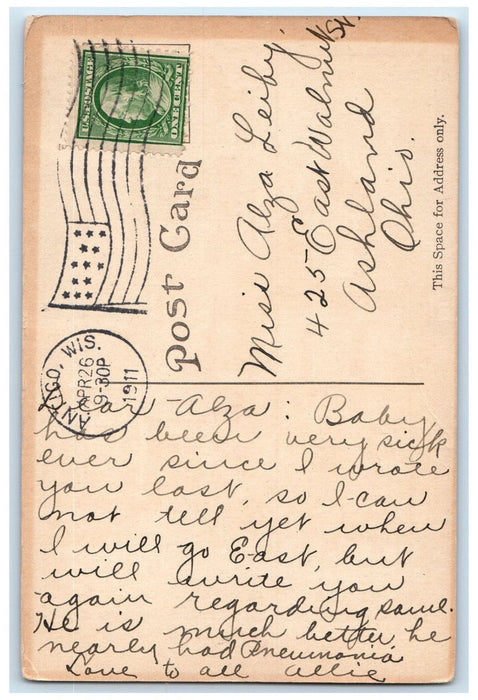 U.S. POSTAGE
ONE CENT
ANTIGO, WIS.
APR 26
9-30P
1911
Post Card
Miss Alza Leiby.
425 East Walnut St.
Ashland
Ohio.
This Space for Address only.
Dear Alza: Baby
has been very sick
ever since I wrote
you last, so I can
not tell yet when
I will go East, but
will write you
again regarding same.
He is much better he
nearly had Pneumonia
Love to all Allie